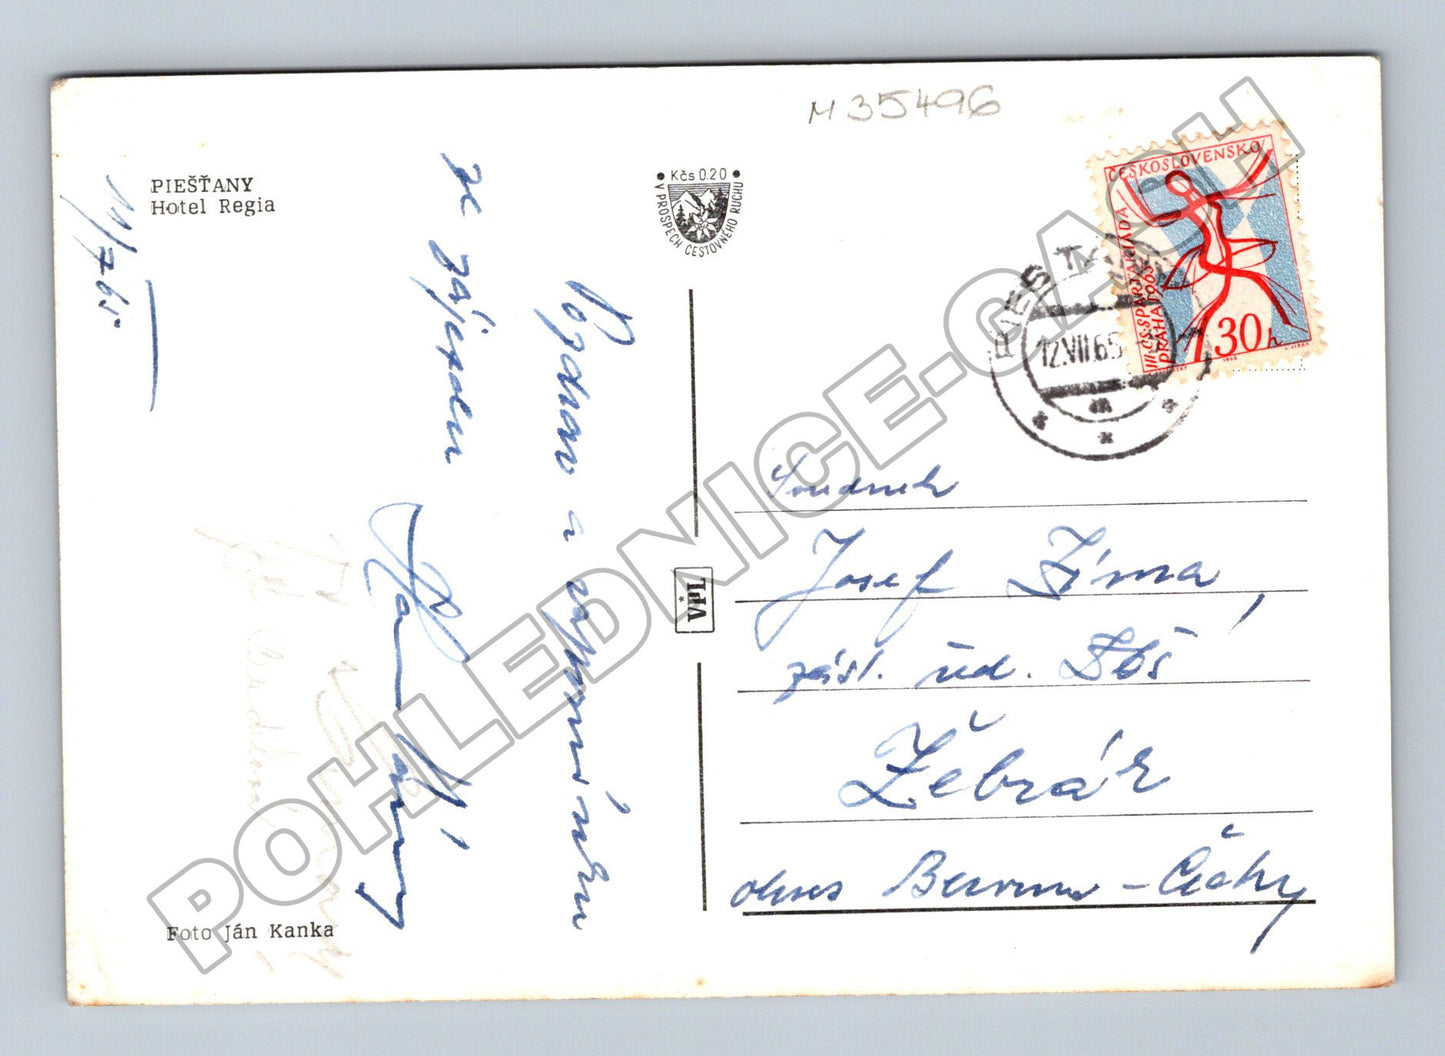 M 35496
PIEŠŤANY
Hotel Regia
11/7 65
Pozdrav a
ze zájezdu
Kčs 0.20
V PROSPĚCH CESTOVNÉHO RUCHU
ČESKOSLOVENSKO
III.CS.SPARTAKIÁDA
PRAHA 1965
30 h
12.VII.65
VPL
Soudruh
Josef Zíma,
zásl. úd. Dbš
Žebrák
okres Beroun - Čechy
Foto Ján Kanka
POHLEDNICE-CACH